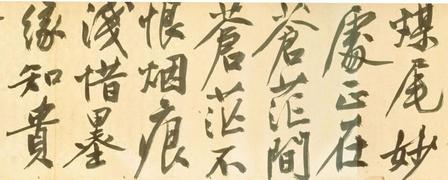 煤尾妙
處正在
蒼茫間
蒼茫不
恨烟痕
淺惜墨
緣知貴